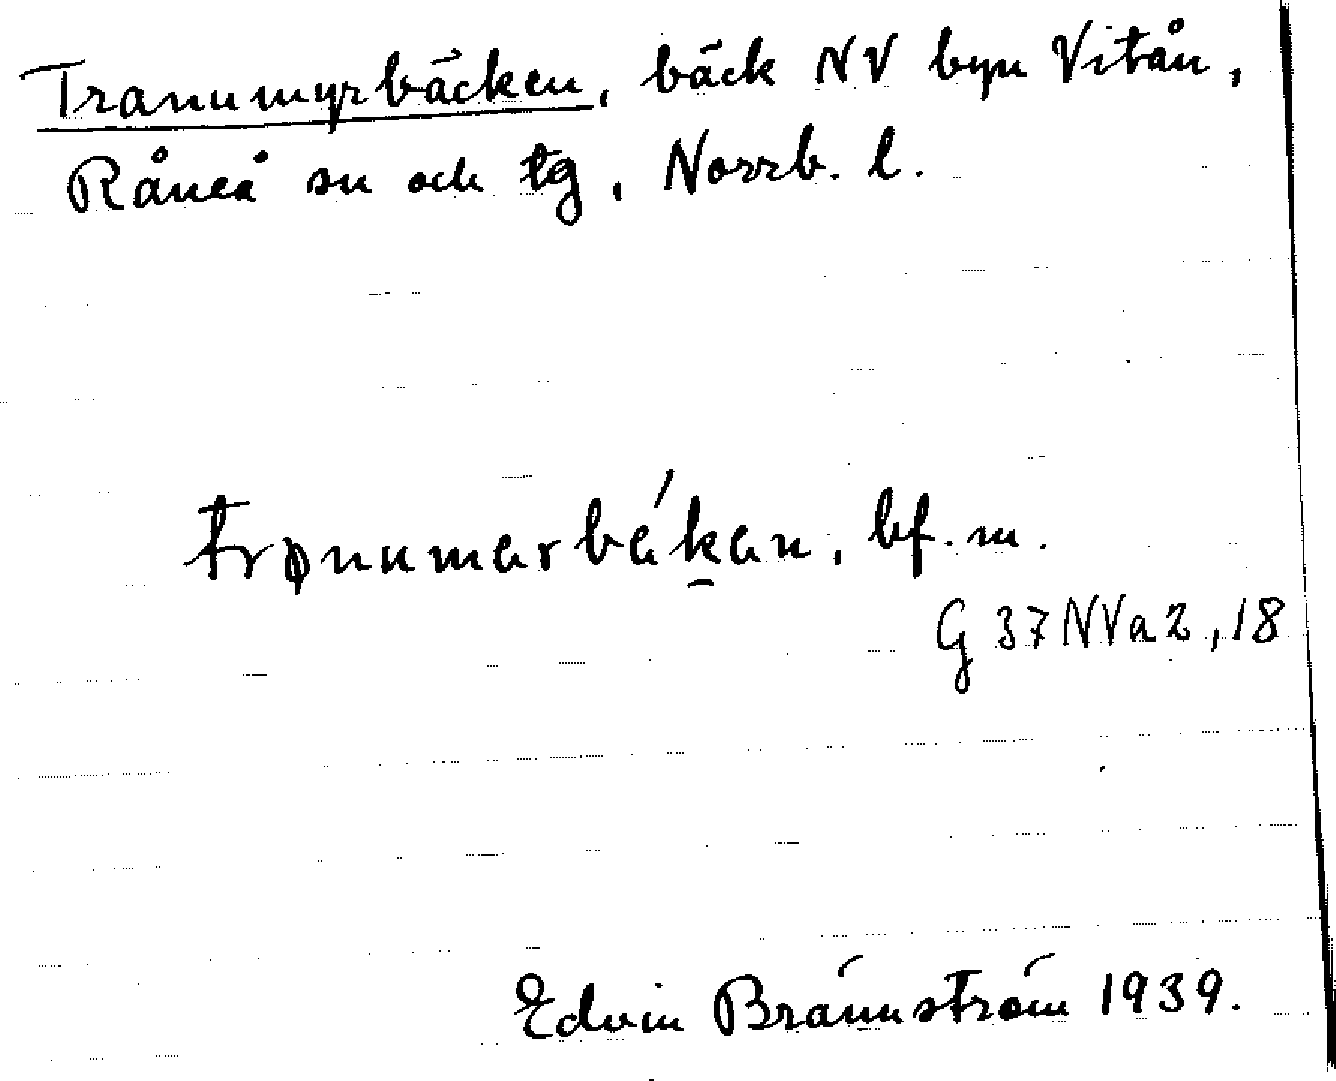 Tranumyrbäcken, bäck NV byn Vitån,
Råneå sn och tg, Norrb. l.
bf. m.
G 37 NVa2, 18
Edvin Brännström 1939.